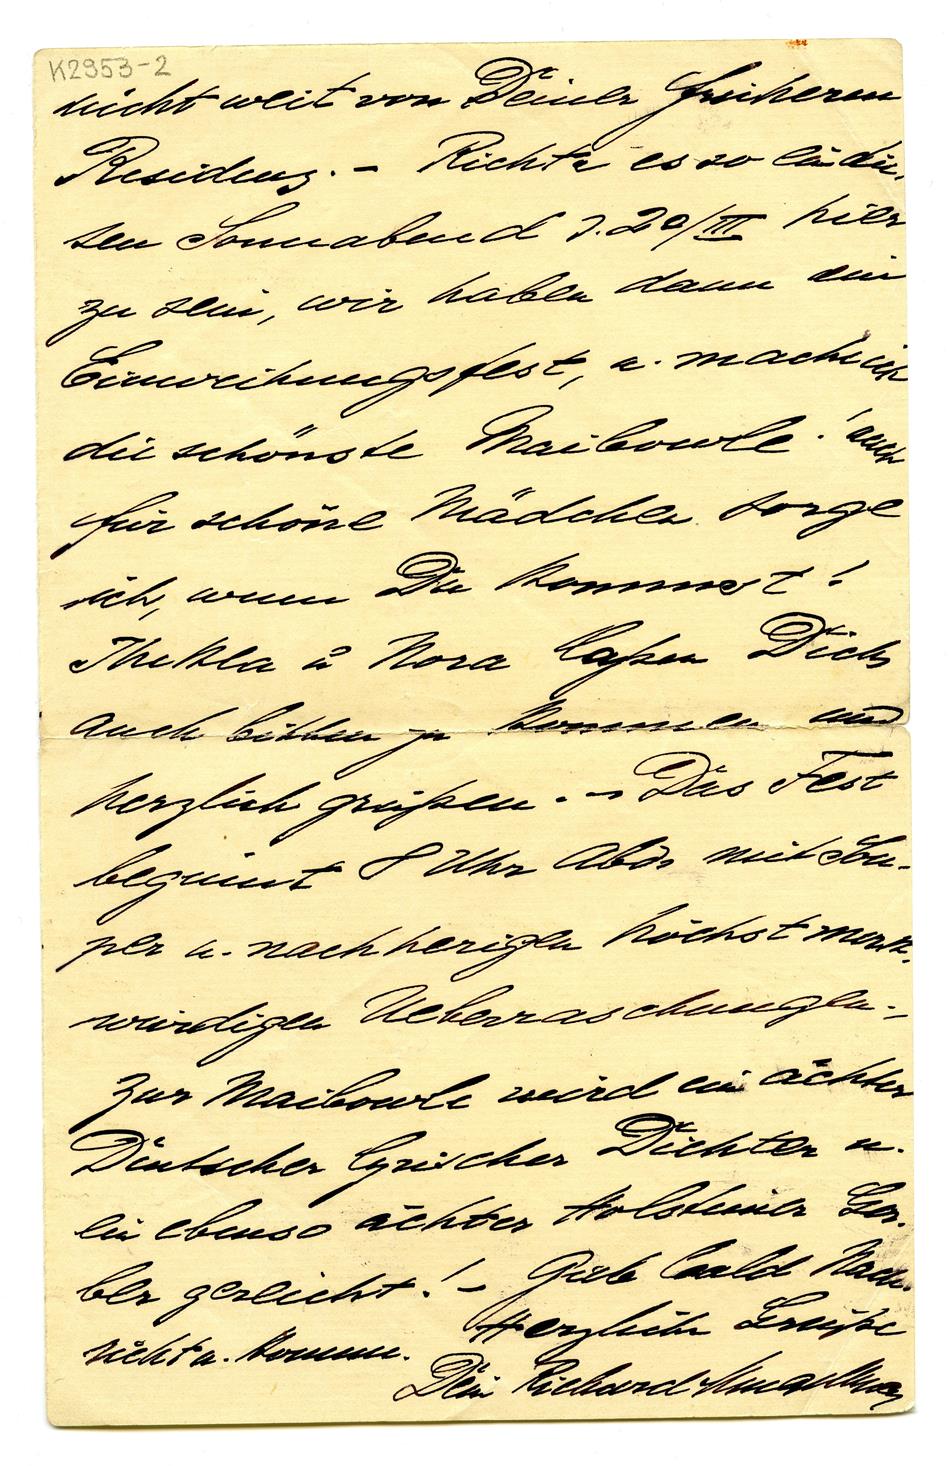 K2953-2
nicht weit von Deiner früheren
Residenz. – Richte es so ein die-
sen Sonnabend d. 20/III hier
zu sein, wir haben dann ein
Einweihungsfest, u. mach ich
die schönste Maibowle! auch
für schöne Mädchen sorge
ich, wenn Du kommst!
Thekla u Nora laßen Dich
auch bitten zu kommen und
herzlich grüßen. – Das Fest
beginnt 8 Uhr Abds mit Sou-
per u. nachherigen höchst merk-
würdigen Ueberraschungen,
Zur Maibowle wird ein ächter
Deutscher lyrischer Dichter u.
ein ebenso ächter Holsteiner Ger-
ber gereicht! – Gieb bald Nach-
richt u. komm. Herzliche Grüße
Dein Richard